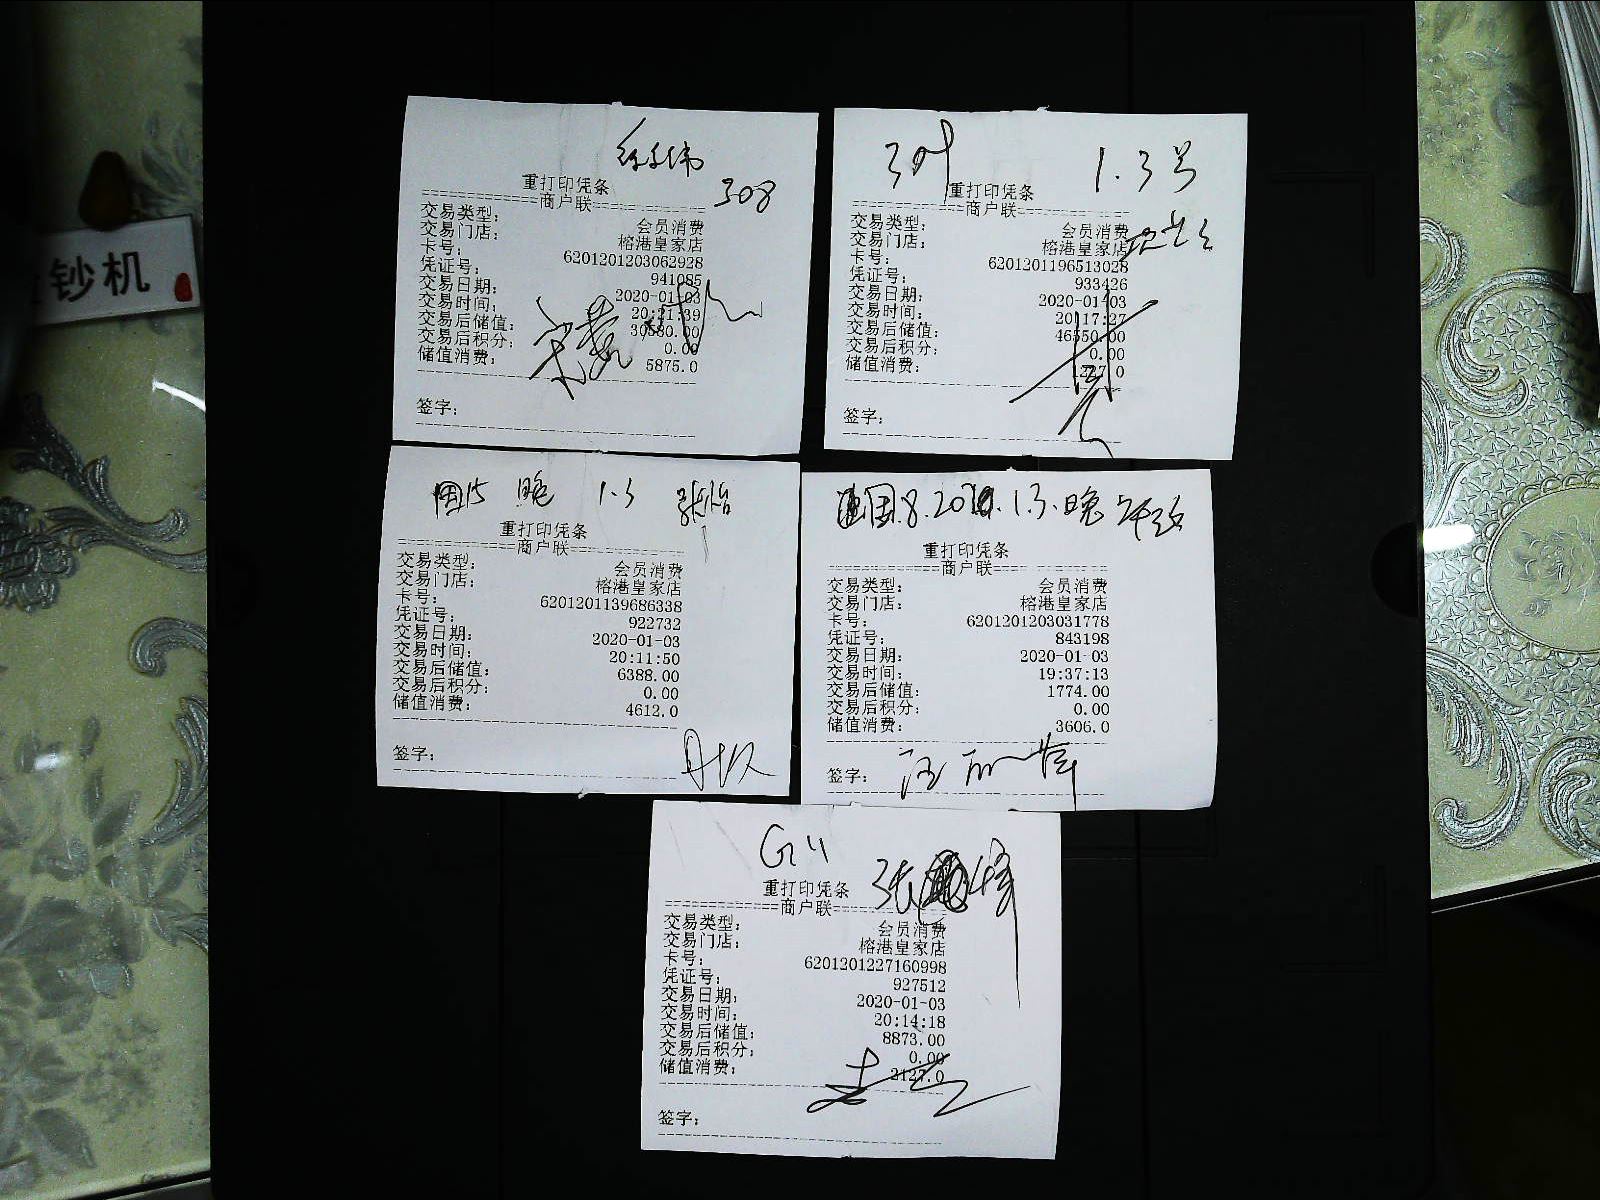 308
重打印凭条
============商户联============
交易类型: 会员消费
交易门店: 榕港皇家店
卡号: 6201201203062928
凭证号: 941085
交易日期: 2020-01-03
交易时间: 20:21:39
交易后储值:
交易后积分: 0.00
储值消费: 5875.0
签字:
1.3号
重打印凭条
============商户联============
交易类型: 会员消费
交易门店: 榕港皇家店
卡号: 6201201196513028
凭证号: 933426
交易日期: 2020-01-03
交易时间: 20:17:27
交易后储值: 46550.00
交易后积分: 0.00
储值消费:
签字:
晚 1.3 张怡
重打印凭条
============商户联============
交易类型: 会员消费
交易门店: 榕港皇家店
卡号: 6201201139686338
凭证号: 922732
交易日期: 2020-01-03
交易时间: 20:11:50
交易后储值: 6388.00
交易后积分: 0.00
储值消费: 4612.0
签字:
国.8. 1.3.晚
重打印凭条
============商户联============
交易类型: 会员消费
交易门店: 榕港皇家店
卡号: 6201201203031778
凭证号: 843198
交易日期: 2020-01-03
交易时间: 19:37:13
交易后储值: 1774.00
交易后积分: 0.00
储值消费: 3606.0
签字:
张
重打印凭条
============商户联============
交易类型: 会员消费
交易门店: 榕港皇家店
卡号: 6201201227160998
凭证号: 927512
交易日期: 2020-01-03
交易时间: 20:14:18
交易后储值: 8873.00
交易后积分: 0.00
储值消费: 2127.0
签字:
钞机